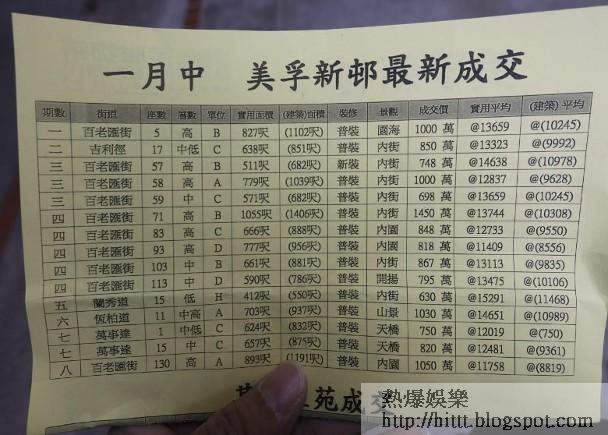 一月中 美孚新邨最新成交
期數 街道 座數 層數 單位 實用面積 (建築)面積 裝修 景觀 成交價 實用平均 (建築) 平均
一 百老匯街 5 高 B 827呎 (1102呎) 普裝 園海 1000 萬 @13659 @(10245)
二 吉利徑 17 中低 C 638呎 (851呎) 普裝 內街 850 萬 @13323 @(9992)
三 百老匯街 57 高 B 511呎 (682呎) 新裝 內街 748 萬 @14638 @(10978)
三 百老匯街 58 高 A 779呎 (1039呎) 普裝 內街 1000 萬 @12837 @(9628)
三 百老匯街 59 中 C 571呎 (682呎) 普裝 內街 698 萬 @13659 @(10245)
四 百老匯街 71 高 B 1055呎 (1406呎) 普裝 內街 1450 萬 @13744 @(10308)
四 百老匯街 83 高 C 666呎 (888呎) 普裝 內園 848 萬 @12733 @(9550)
四 百老匯街 93 高 D 777呎 (956呎) 普裝 內園 818 萬 @11409 @(8556)
四 百老匯街 103 中 B 661呎 (881呎) 普裝 內街 867 萬 @13113 @(9835)
四 百老匯街 113 中 D 590呎 (786呎) 普裝 開揚 795 萬 @13475 @(10106)
五 蘭秀道 15 低 H 412呎 (550呎) 普裝 內街 630 萬 @15291 @(11468)
六 恆柏道 11 中高 A 703呎 (937呎) 普裝 山景 1030 萬 @14651 @(10989)
七 萬事達 1 中低 C 624呎 (832呎) 普裝 天橋 750 萬 @12019 @(750)
七 萬事達 15 中 C 657呎 (875呎) 普裝 天橋 820 萬 @12481 @(9361)
八 百老匯街 130 高 A 893呎 (1191呎) 普裝 內園 1050 萬 @11758 @(8819)
苑成交
熱爆娛樂
http://hittt.blogspot.com/